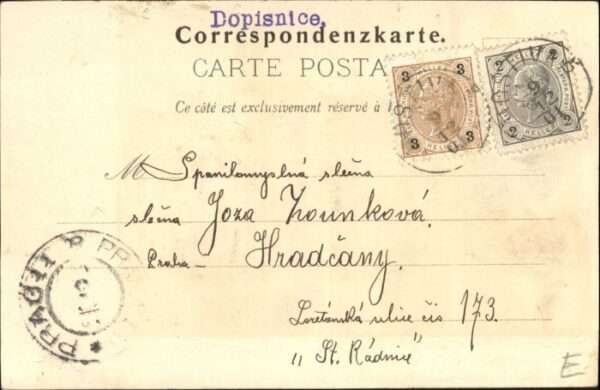 Dopisnice.
Correspondenzkarte.
CARTE POSTA
Ce côté est exclusivement réservé à l
3 3
3 3
2 2
2 2
M Spanilomyslná slečna
slečna Joza Zounková.
Praha — Hradčany.
Loretánská ulice čís 173.
„St. Rádnice"
E